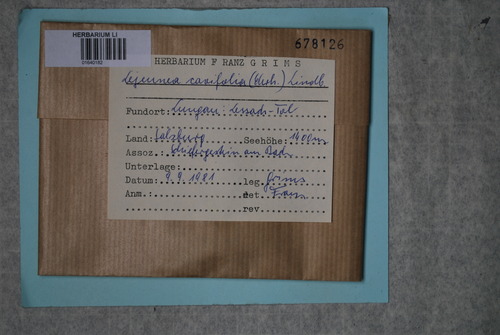 HERBARIUM LI
678126
HERBARIUM FRANZ GRIMS
Lejeunea cavifolia (Ehrh.) Lindb.
Fundort: Lungau: Lessach-Tal
Land: Salzburg Seehöhe: 1400m
Assoz. am Bach
Unterlage:
Datum: 9.9.1981 leg. Grims
Anm.: det.
rev.